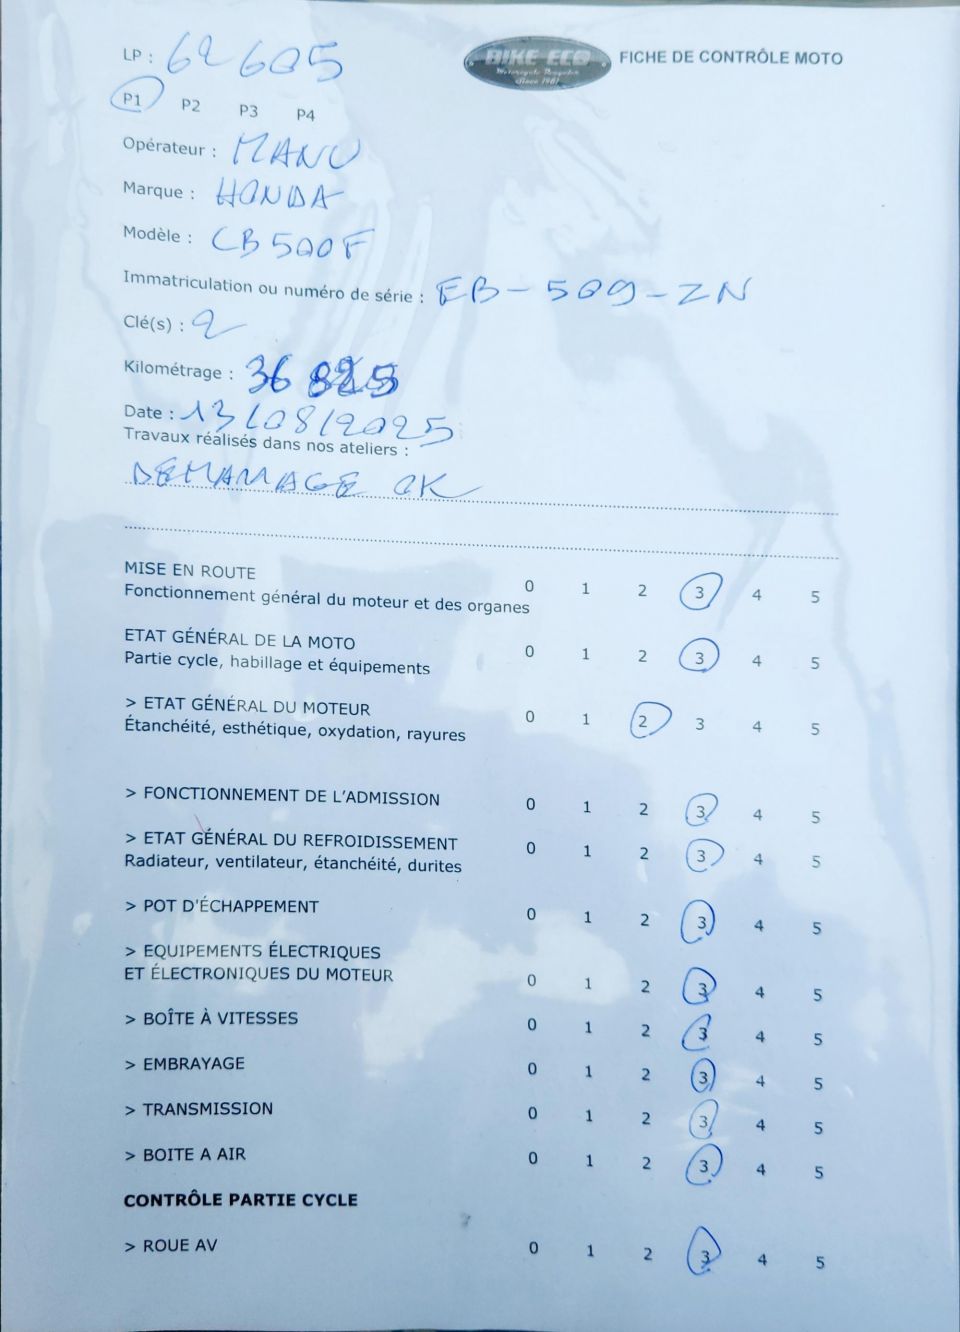 LP : 62605
BIKE ECO
Motorcycle Recycler
Since 1981
FICHE DE CONTRÔLE MOTO
P1 P2 P3 P4
Opérateur : MANU
Marque : HONDA
Modèle : CB500F
Immatriculation ou numéro de série : EB-509-ZN
Clé(s) : 2
Kilométrage : 36 825
Date : 13/08/2025
Travaux réalisés dans nos ateliers :
DEMARRAGE OK
MISE EN ROUTE
Fonctionnement général du moteur et des organes 0 1 2 3 4 5
ETAT GÉNÉRAL DE LA MOTO
Partie cycle, habillage et équipements 0 1 2 3 4 5
> ETAT GÉNÉRAL DU MOTEUR
Étanchéité, esthétique, oxydation, rayures 0 1 2 3 4 5
> FONCTIONNEMENT DE L'ADMISSION 0 1 2 3 4 5
> ETAT GÉNÉRAL DU REFROIDISSEMENT 0 1 2 3 4 5
Radiateur, ventilateur, étanchéité, durites
> POT D'ÉCHAPPEMENT 0 1 2 3 4 5
> EQUIPEMENTS ÉLECTRIQUES
ET ÉLECTRONIQUES DU MOTEUR 0 1 2 3 4 5
> BOÎTE À VITESSES 0 1 2 3 4 5
> EMBRAYAGE 0 1 2 3 4 5
> TRANSMISSION 0 1 2 3 4 5
> BOITE A AIR 0 1 2 3 4 5
CONTRÔLE PARTIE CYCLE
> ROUE AV 0 1 2 3 4 5